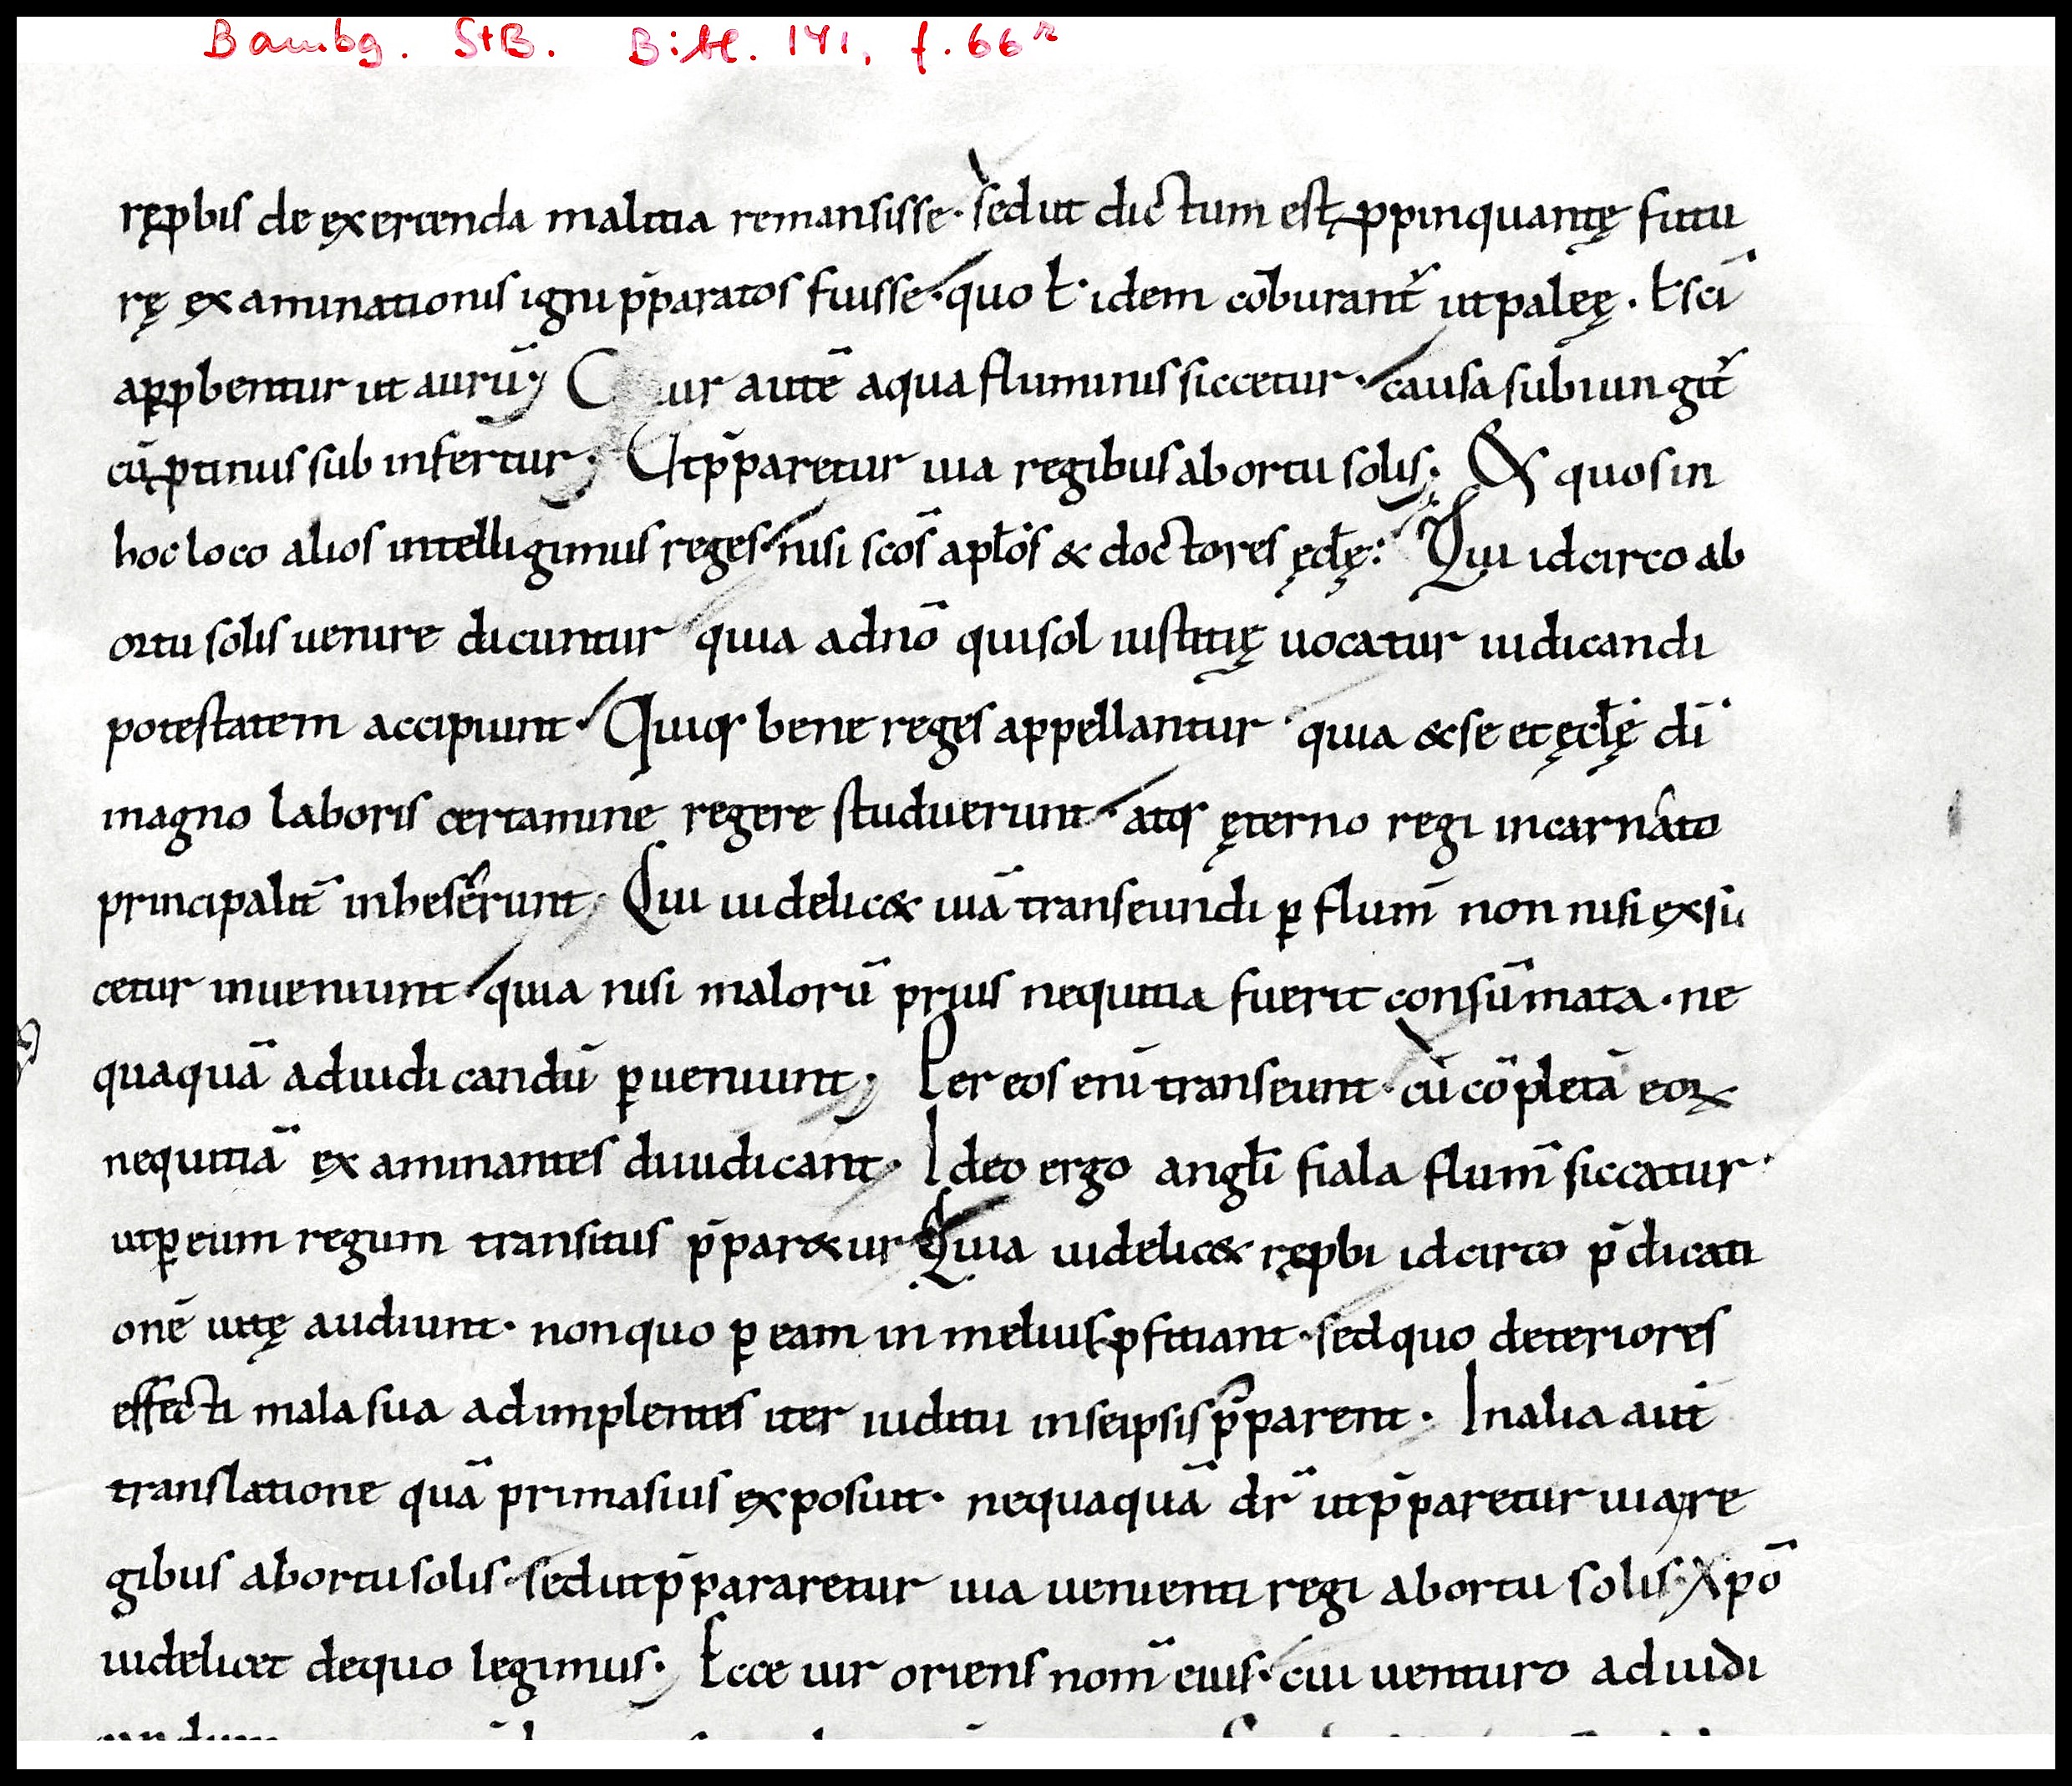 Bambg. StB. Bibl. 141, f. 66r
ręꝓbis de exercenda malitia remansisse· sed ut dictum est, ꝓpinquantę futu
rę examinationis igni p̄paratos fuisse· quo ł· idem cōburant᷑ ut paleę· ł sc̄i
apꝓbentur ut aurū; Cur autē aqua fluminis siccetur· causa subiungit᷑
cū ꝓtinus sub infertur; Ut p̄paretur uia regibus ab ortu solis; & quos in
hoc loco alios intelligimus reges· nisi sc̄os apłos & doctores ęcłę: Qui idcirco ab
ortu solis uenire dicuntur quia ad n̄o qui sol iustitię uocatur iudicandi
potestatem accipiunt· Quiq; bene reges appellantur· quia & se et ęcłę dī
magno laboris certamine regere studuerunt· atq; ęterno regi incarnato
principalit̄ inheserunt; Qui uidelic& uiā transeundi ꝑ flum̄ non nisi exsic
cetur inueniunt· quia nisi malorū prius nequitia fuerit consūmata· ne
quaquā ad iudicandū ꝑueniunt; Per eos enī transeunt· cū cōpletā eoꝝ
nequitiā examinantes diiudicant· Ideo ergo angłi fiala flum̄ siccatur·
ut ꝑ eum regum transitus p̄par&ur Quia uidelic& ręꝓbi idcirco p̄dicati
onē uitę audiunt· non quo ꝑ eam in melius ꝓfitiant· sed quo deteriores
effecti mala sua adimplentes iter iuditii in seipsis p̄parent· In alia aut̄
translatione quā primasius exposuit· nequaquā dr̄ ut p̄paretur uia re
gibus ab ortu solis· sed ut p̄pararetur uia uenienti regi ab ortu solis· xp̄o
uidelicet de quo legimus; Ecce uir oriens nom̄ eius· cui uenturo ad iudi